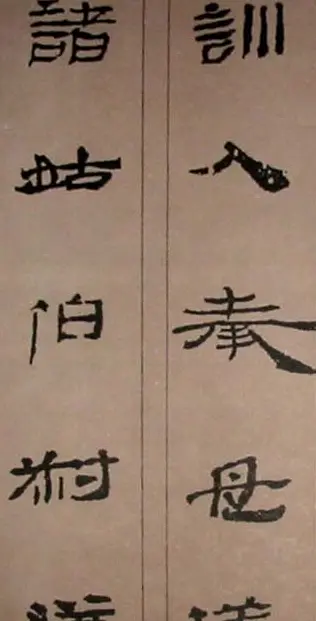 訓入奉母
諸姑伯叔